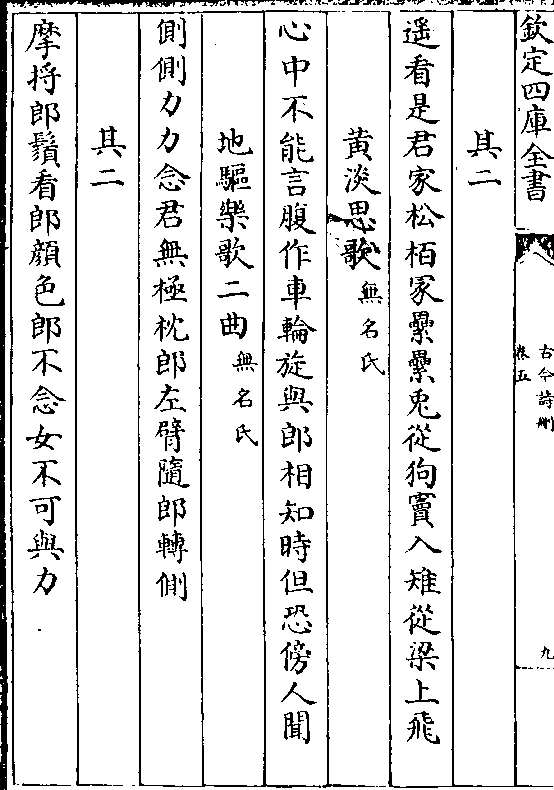 欽定四庫全書
古今詩刪
卷五
九
其二
遥看是君家松栢冢纍纍兎從狗竇入雉從梁上飛
黄淡思歌無名氏
心中不能言腹作車輪旋與郎相知時但恐傍人聞
地驅樂歌二曲無名氏
側側力力念君無極枕郎左臂隨郎轉側
其二
摩捋郎鬚看郎顔色郎不念女不可與力